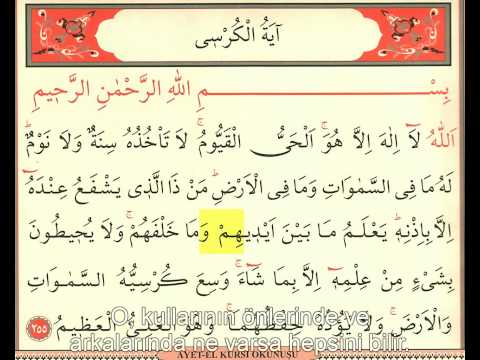 آيَةُ الْكُرْسٖى
بِسْمِ اللّٰهِ الرَّحْمٰنِ الرَّحٖيمِ
اَللّٰهُ لَآ اِلٰهَ اِلَّا هُوَۚ اَلْحَىُّ الْقَيُّومُۚ لَا تَأْخُذُهُ سِنَةٌ وَلَا نَوْمٌۜ
لَهُ مَا فِى السَّمٰوَاتِ وَمَا فِى الْاَرْضِۜ مَنْ ذَا الَّذٖى يَشْفَعُ عِنْدَهُٓ
اِلَّا بِاِذْنِهٖۜ يَعْلَمُ مَا بَيْنَ اَيْدٖيهِمْ وَمَا خَلْفَهُمْۚ وَلَا يُحٖيطُونَ
بِشَىْءٍ مِنْ عِلْمِهٖٓ اِلَّا بِمَا شَٓاءَۚ وَسِعَ كُرْسِيُّهُ السَّمٰوَاتِ
وَالْاَرْضَۚ وَلَا يَؤُ۫دُهُ حِفْظُهُمَاۚ وَهُوَ الْعَلِىُّ الْعَظٖيمُ
٢٥٥
O, kullarının önlerinde ve
arkalarında ne varsa hepsini bilir.
AYET-EL KURSİ OKUNUSU